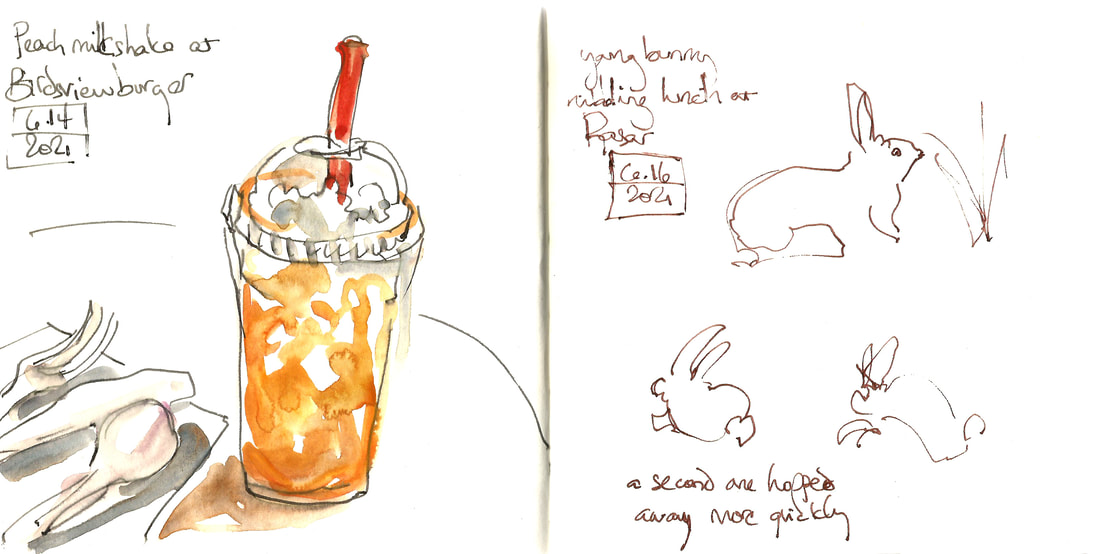 Peach milkshake at
Birdsviewburger
6.14
2021
young bunny
nibbling lunch at
6.16
2021
a second one hopped
away more quickly